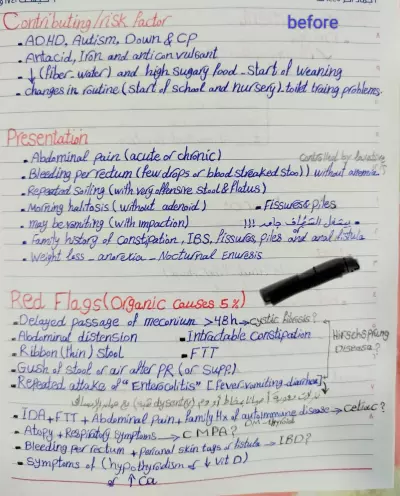 before
Contributing/risk factor
- ADHD, Autism, Down & CP
- Antacid, Iron and anticonvulsant
- ↓ (fiber-water) and high sugary food - start of weaning
- changes in routine (start of school and nursery) - toilet traing problems.
Presentation
- Abdominal pain (acute or chronic)
- Bleeding per rectum (few drops or blood streaked stool) without anemia
controlled by laxative
- Repeated soiling (with very offensive stool & flatus)
- Morning halitosis (without adenoid)
- Fissures & piles
- may be vomiting (with impaction)
!!! بيعمل السيفون جامد
- Family history of constipation, IBS, fissures, piles and anal fistula
- Weight loss - anorexia - Nocturnal Enuresis
Red Flags (Organic causes 5%)
- Delayed passage of meconium > 48h → cystic fibrosis?
- Abdominal distension
- Intractable Constipation
Hirschsprung Disease?
- Ribbon (thin) stool
- FTT
- Gush of stool or air after PR (or Supp.)
- Repeated attake of "Enterocolitis" [fever-vomiting-diarrhea]
(dysentery)
- IDA + FTT + Abdominal pain + Family Hx of autoimmune disease → celiac?
DM - thyroid
- Atopy + Respiratory symptoms → CMPA?
- Bleeding per rectum + perianal skin tags or fistula → IBD?
- Symptoms of (hypothyrodism or ↓ Vit D)
or ↑ Ca